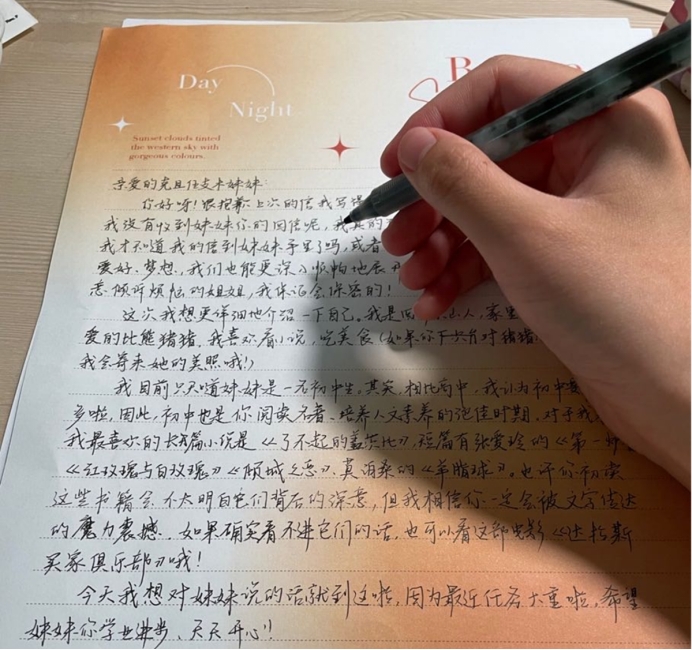 Day
Night
Sunset clouds tinted
the western sky with
gorgeous colours.
亲爱的克且任支木妹妹:
你好呀!很抱歉上次的信我写得
我没有收到妹妹你的回信呢,我真的
我才不知道我的信到妹妹手里了吗,或者
爱好、梦想,我们也能更深入
悉倾听烦恼的姐姐,我保证会保密的!
这次我想更详细地介绍一下自己。我是四川 山人,家里
爱的比熊猪猪。我喜欢看小说,吃美食(如果你 对猪猪
我会寄来她的美照哦!)
我目前只知道妹妹是一名初中生。其实,相比高中,我认为初中
多啦,因此,初中也是你阅读名著、培养人文素养的绝佳时期。对于我
我最喜欢的长篇小说是《了不起的盖茨比》,短篇有张爱玲的《第一炉
《红玫瑰与白玫瑰》《倾城之恋》、莫泊桑的《羊脂球》。也许你初读
这些书籍会不太明白它们背后的深意,但我相信你一定会被文字传达
的魔力震撼。如果确实看不进它们的话,也可以看这部电影《达拉斯
买家俱乐部》哦!
今天我想对妹妹说的话就到这啦,因为最近任务太重啦,希望
妹妹你学业进步、天天开心!